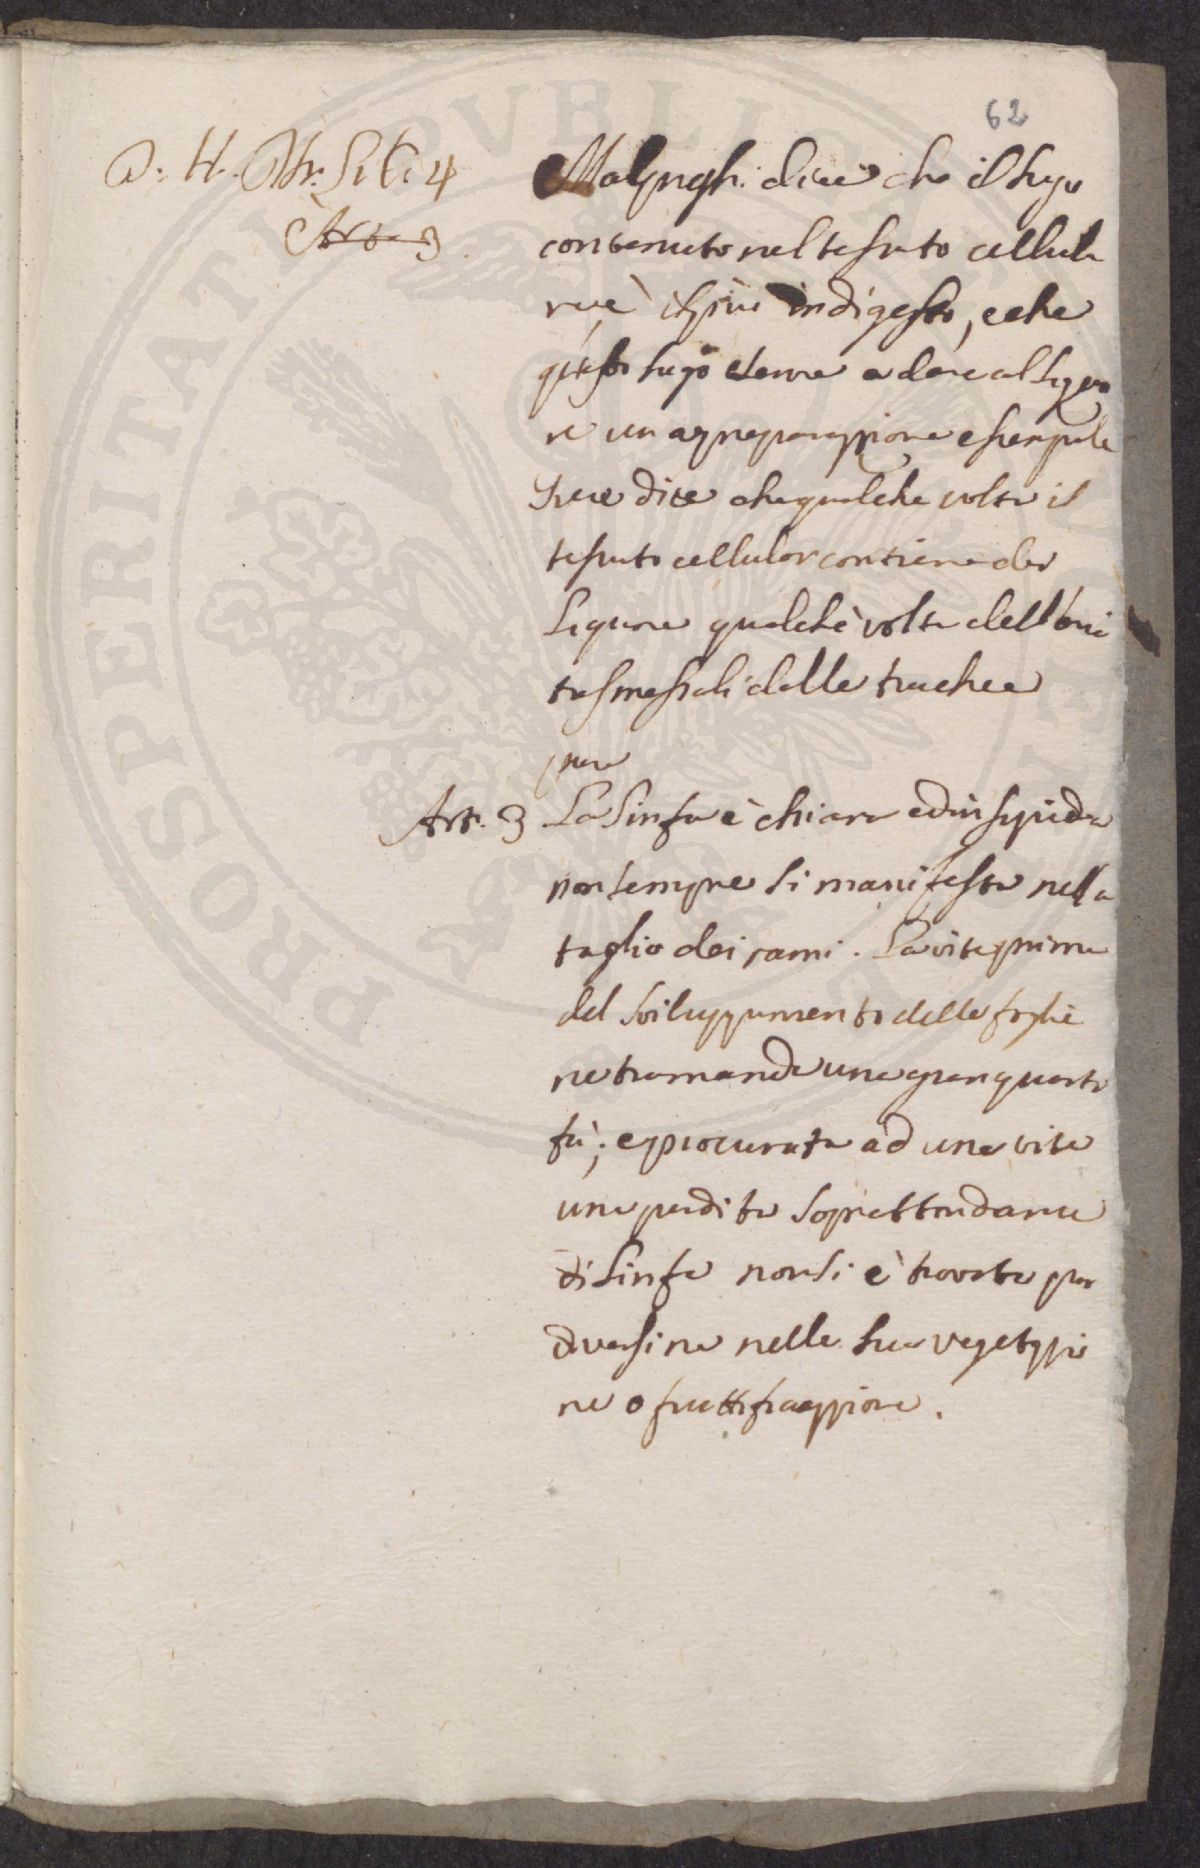 62
D. H. Mr. Lib. 4
Art. 3
Malpighi dice che il sugo
contenuto nel tessuto cellula
re è il più indigesto, e che
questo sugo serve a dare al liquo
re una preparazzione e sempre
dice che qualche volta il
tessuto cellular contiene del
liquore qualche volta dell'aria
trasmessali dalle trachee
pure
Art. 3 La linfa è chiara ed insipida
non sempre si manifesta nella
taglio dei rami. La vite prima
del sviluppamento delle foglie
ne tramanda una gran quanti
tà; e procurata ad una vite
una perdita soprabbondante
di linfa non si è trovata per
diversine nella sua vegetazzio
ne o fruttificazzione.
PROSPERITATI PUBLICAE